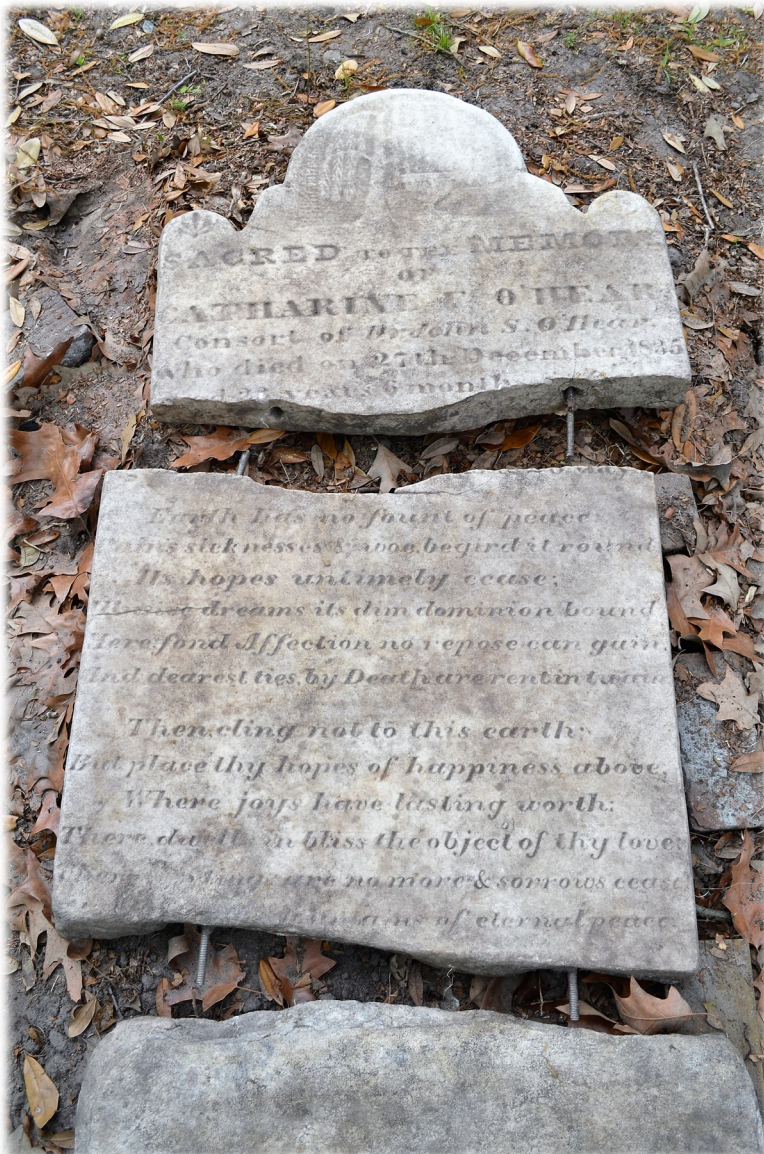 SACRED TO THE MEMORY
OF
CATHARINE F. O'HEAR
Consort of Dr. John S. O'Hear.
Who died on 27th December 1835
years 6 month
Earth has no fount of peace
Pains sicknesses & woe, begird it round
Its hopes untimely cease;
dreams its dim dominion bound
Here fond Affection no repose can gain
And dearest ties, by Death are rent in twain
Then, cling not to this earth;
But place thy hopes of happiness above,
Where joys have lasting worth;
There dwells in bliss the object of thy love;
are no more & sorrows cease
of eternal peace